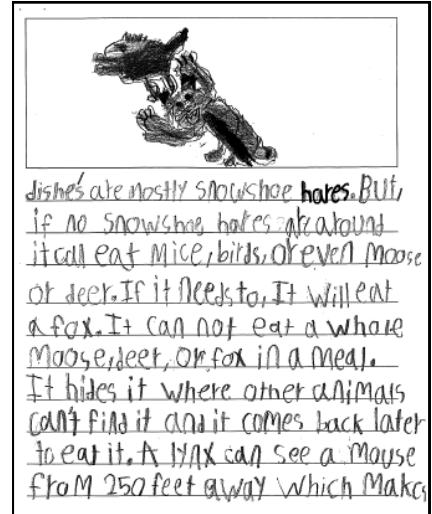 dishe's are mostly snowshoe hares. But,
if no snowshoe hares are around
it can eat Mice, birds, or even Moose
or deer. If it needs to, It will eat
a fox. It can not eat a whole
Moose, deer, or fox in a meal.
It hides it where other animals
can't find it and it comes back later
to eat it. A lynx can see a Mouse
from 250 feet away which makes